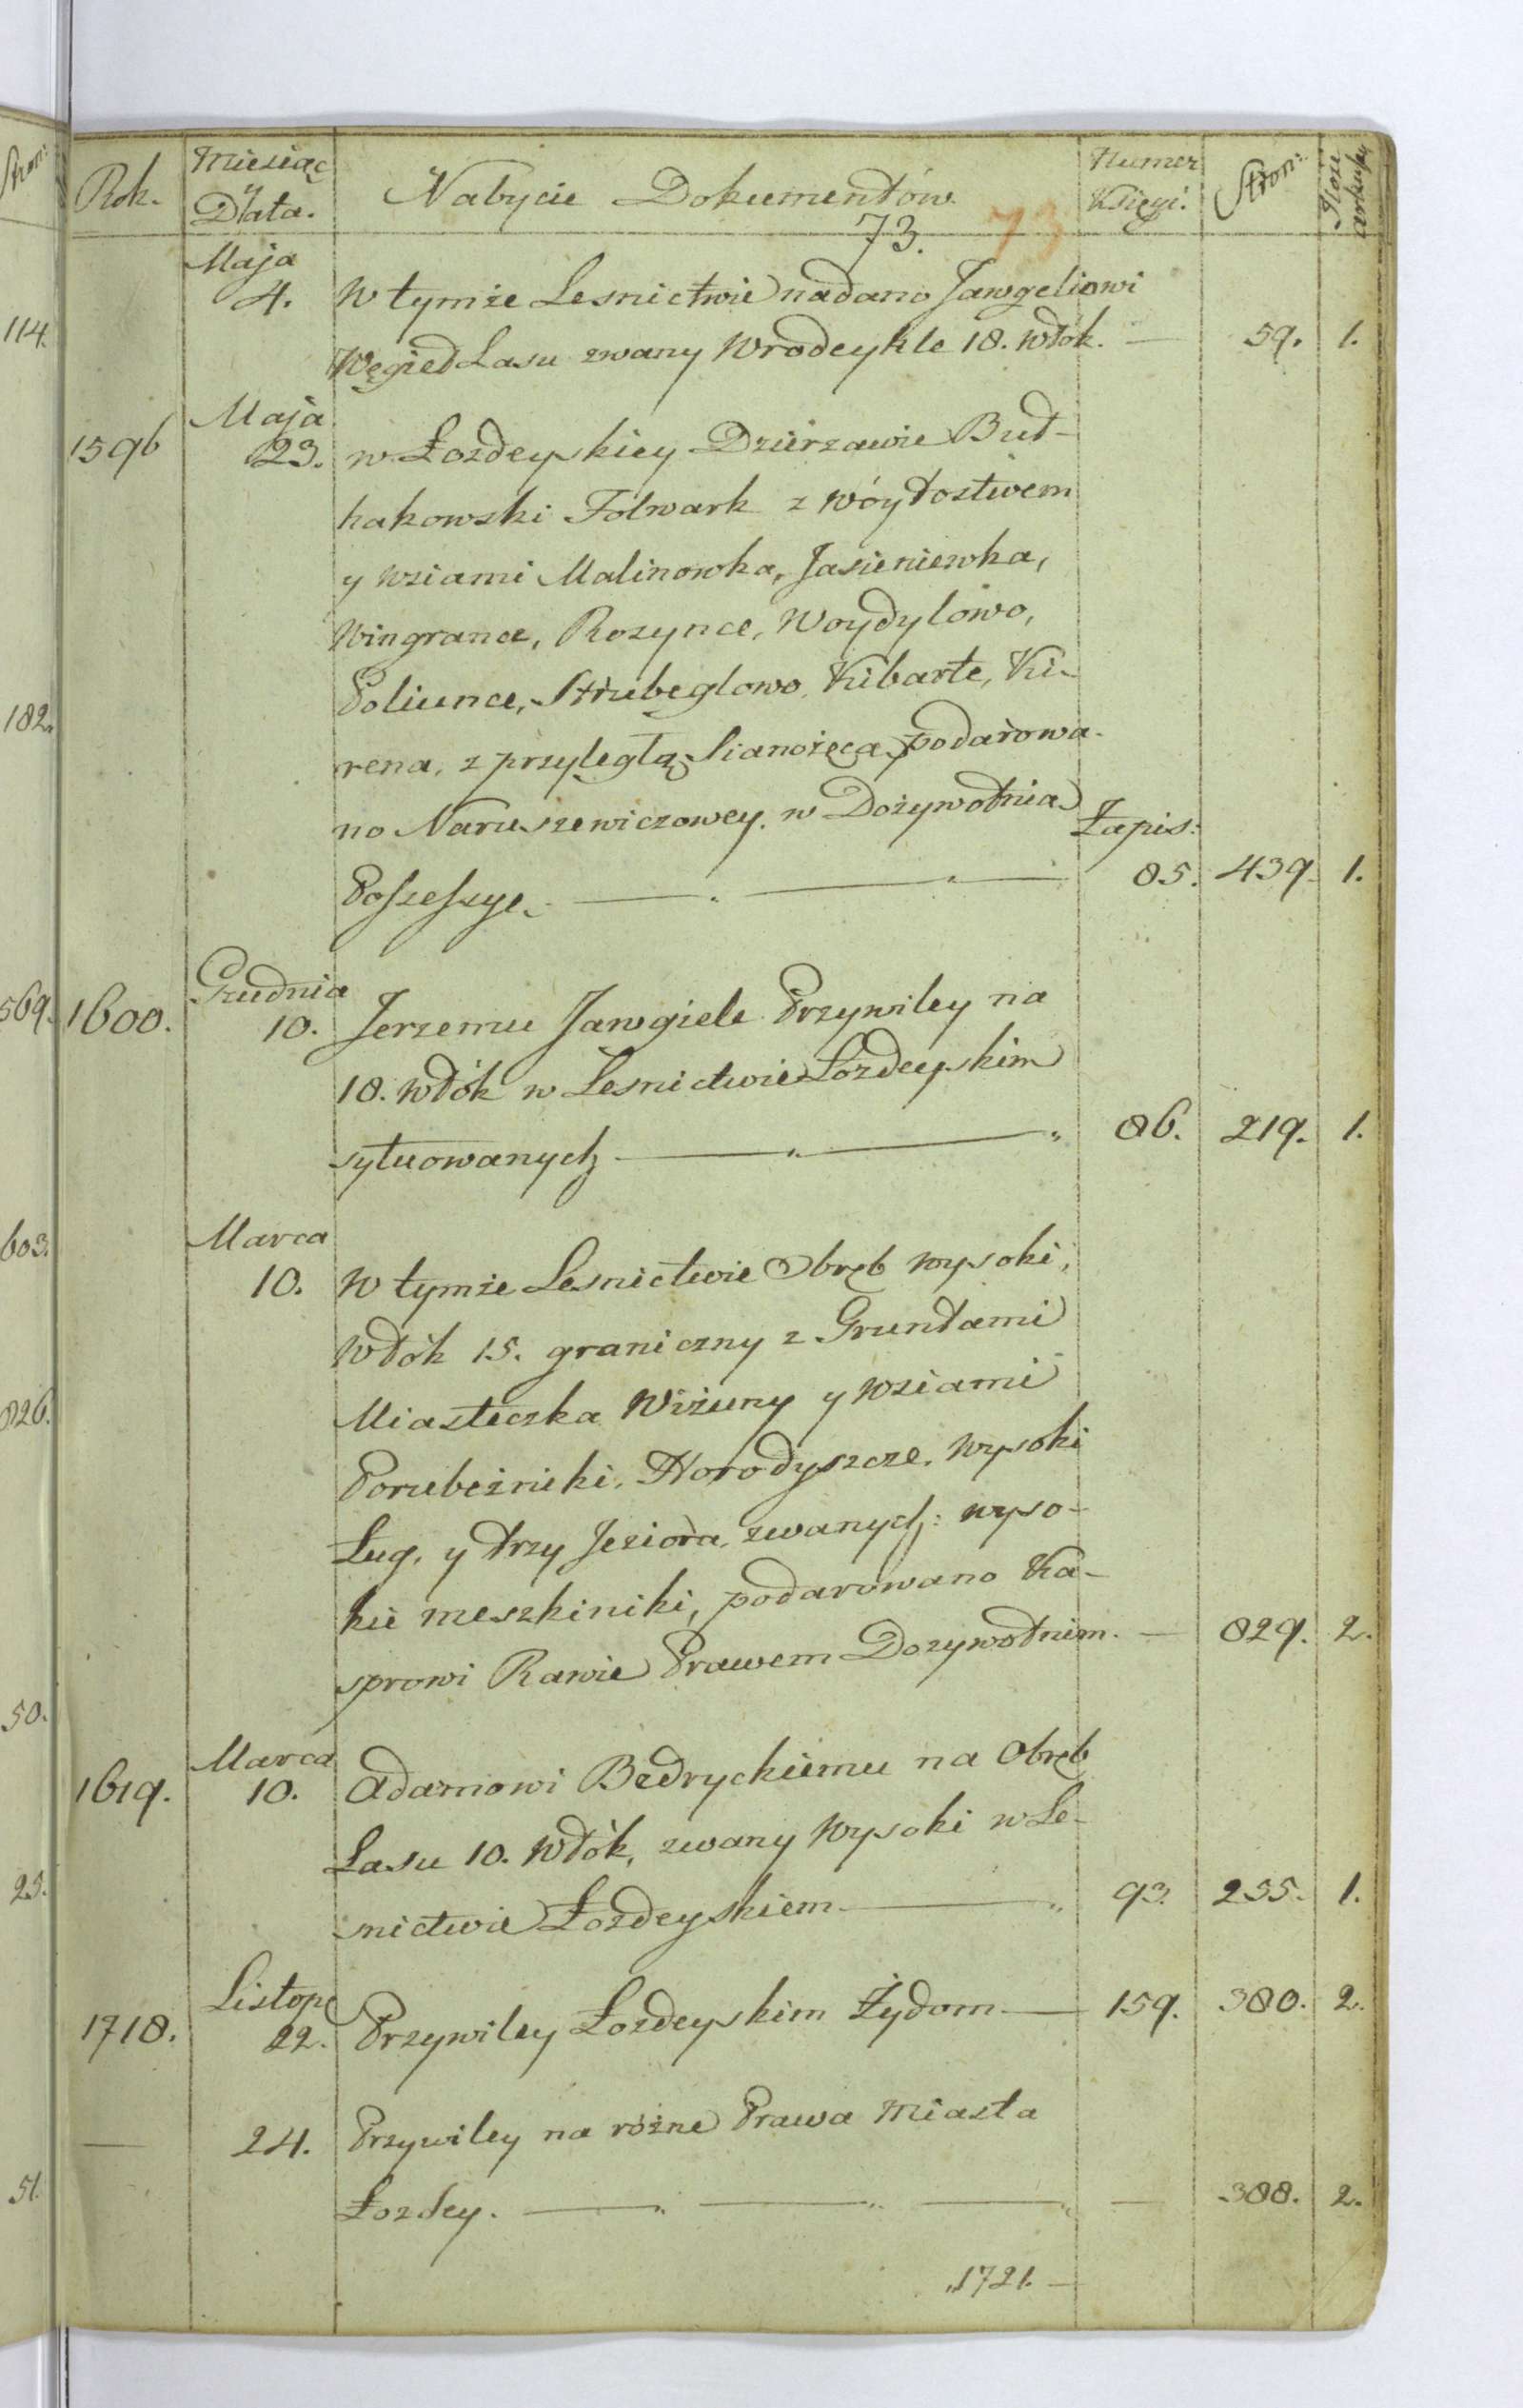 Stron:
Rok.
Miesiąc
y
Data.
Nabycie Dokumentów
Numer
Księgi.
Stron:
Ilość
arkuszy
73.
73
Maja
4. W tymże Lesnictwie nadano Jawgeliowi
114.
Węgieł Lasu zwany Wrodcykle 18. włók. — 59. 1.
Maja
1596 23. w Łozdeyskiey Dzierzawie Buł-
kakowski Folwark z Wóytostwem
y wsiami Malinowka, Jasieniewka,
Wingrance, Rozynce, Woydylowo,
Poliunce, Strubeglowo, Kibarte, Ki-
182.
rena, z przyległą Sianożęcą podarowa-
no Naruszewiczowey. w Dożywotnia Zapis:
Possessye. — 85. 439. 1.
Grudnia
569. 1600. 10. Jerzemu Jawgiele Przywiley na
18. włók w Lesnictwie Łozdeyskim
sytuowanych — 86. 219. 1.
603.
Marca
10. W tymże Lesnictwie Obręb wysoki,
Włók 15. graniczny z Gruntami
826.
Miasteczka Wiżuny y wsiami
Porubeżniki, Horodyszcze, wysoki
Ług, y trzy Jeziora, zwanych: wyso-
kie meszkiniki, podarowano Ka-
sprowi Rawie Prawem Dozywotnim. — 829. 2.
50.
Marca
1619. 10. Adamowi Bedryckiemu na Obręb
Lasu 10. Włók, zwany Wysoki w Le-
25.
snictwie Łozdeyskiem — 93. 255. 1.
Listop.
1718. 22. Przywiley Łozdeyskim Żydom — 159. 380. 2.
— 24. Przywiley na rózne Prawa Miasta
51.
Łozdey. — — 388. 2.
1721. —